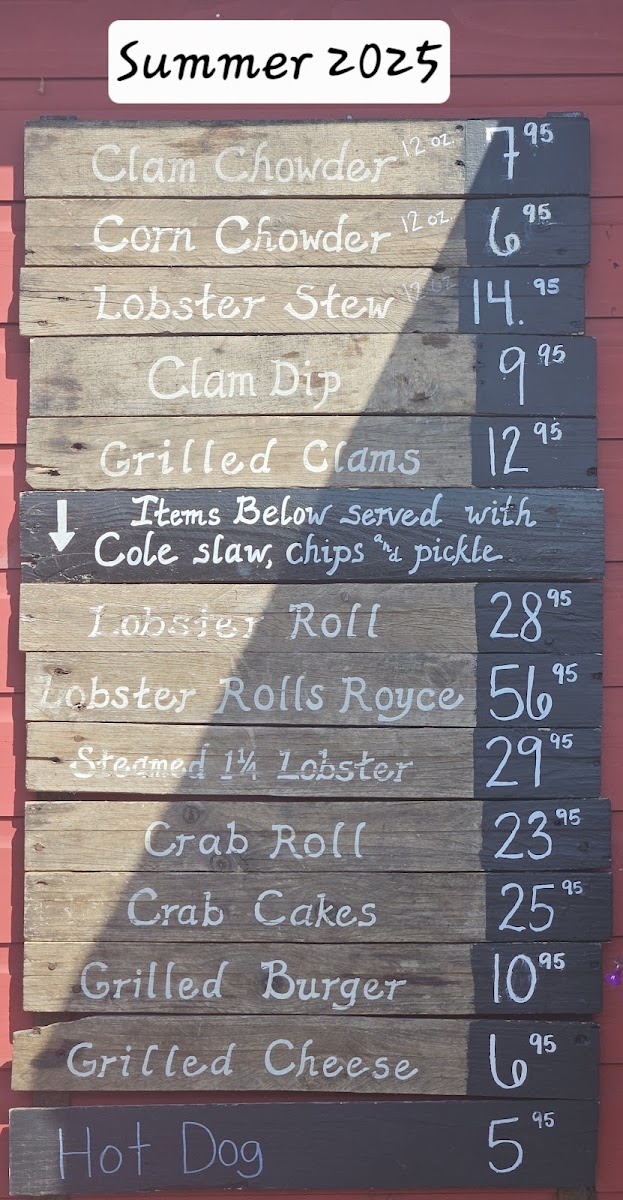 Summer 2025
Clam Chowder 12 oz. 7 95
Corn Chowder 12 oz. 6 95
Lobster Stew 12 oz. 14. 95
Clam Dip 9 95
Grilled Clams 12 95
↓ Items Below served with
Cole slaw, chips and pickle
Lobster Roll 28 95
Lobster Rolls Royce 56 95
Steamed 1¼ Lobster 29 95
Crab Roll 23 95
Crab Cakes 25 95
Grilled Burger 10 95
Grilled Cheese 6 95
Hot Dog 5 95